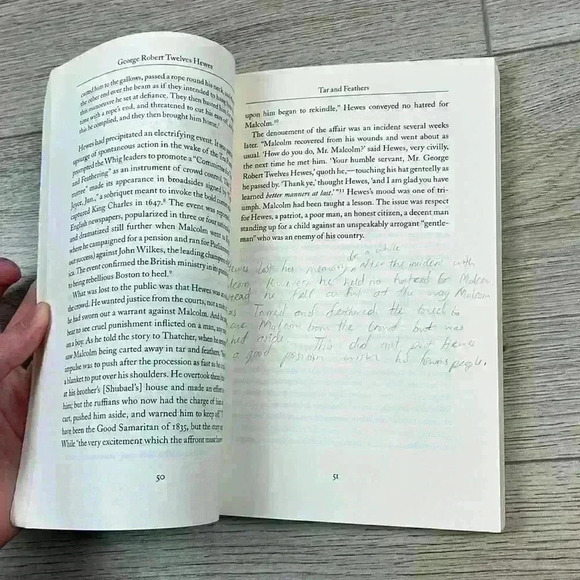 George Robert Twelves Hewes
to the gallows, passed a rope round his neck,
the other end over the beam as if they intended to hang
this manoeuvre he set at defiance. They then
time with a rope's end, and threatened to cut his ears off
this he complied, and they then brought him home.
Hewes had precipitated an electrifying event. It
upsurge of spontaneous action in the wake of the Tea
prompted the Whig leaders to promote a "Committee
and Feathering" as an instrument of crowd control. The
made its appearance in broadsides signed by
Joyce, Jun.," a sobriquet meant to invoke the bold
captured King Charles in 1647. The event was
English newspapers, popularized in three or four
and dramatized still further when Malcolm went to
where he campaigned for a pension and ran for Parliament
our success) against John Wilkes, the leading champion
ca. The event confirmed the British ministry in its
to being rebellious Boston to heel.
What was lost to the public was that Hewes was
the crowd. He wanted justice from the courts, not a
he had sworn out a warrant against Malcolm. And
bear to see cruel punishment inflicted on a man, any
on a boy. As he told the story to Thatcher, when he
saw Malcolm being carted away in tar and feathers,
impulse was to push after the procession as fast as he
a blanket to put over his shoulders. He overtook them
at his brother's [Shubael's] house and made an effort
him; but the ruffians who now had the charge of
cart, pushed him aside, and warned him to keep off."
have been the Good Samaritan of 1835, but the
While "the very excitement which the affront must have
50
Tar and Feathers
upon him began to rekindle," Hewes conveyed no hatred for
Malcolm.
The denouement of the affair was an incident several weeks
later. "Malcolm recovered from his wounds and went about as
usual. 'How do you do, Mr. Malcolm?' said Hewes, very civilly,
the next time he met him. 'Your humble servant, Mr. George
Robert Twelves Hewes,' quoth he,—touching his hat genteelly as
he passed by. 'Thank ye,' thought Hewes, 'and I am glad you have
learned better manners at last.'" Hewes's mood was one of tri-
umph. Malcolm had been taught a lesson. The issue was respect
for Hewes, a patriot, a poor man, an honest citizen, a decent man
standing up for a child against an unspeakably arrogant "gentle-
man" who was an enemy of his country.
for a while
lost his memory after the incident with
However he held no hatred for Malcolm
he felt at the way Malcolm
was Tarred and feathered. He tried to
Malcolm from the crowd but was
aside. This did not put Hewes
a good position with his townspeople.
51